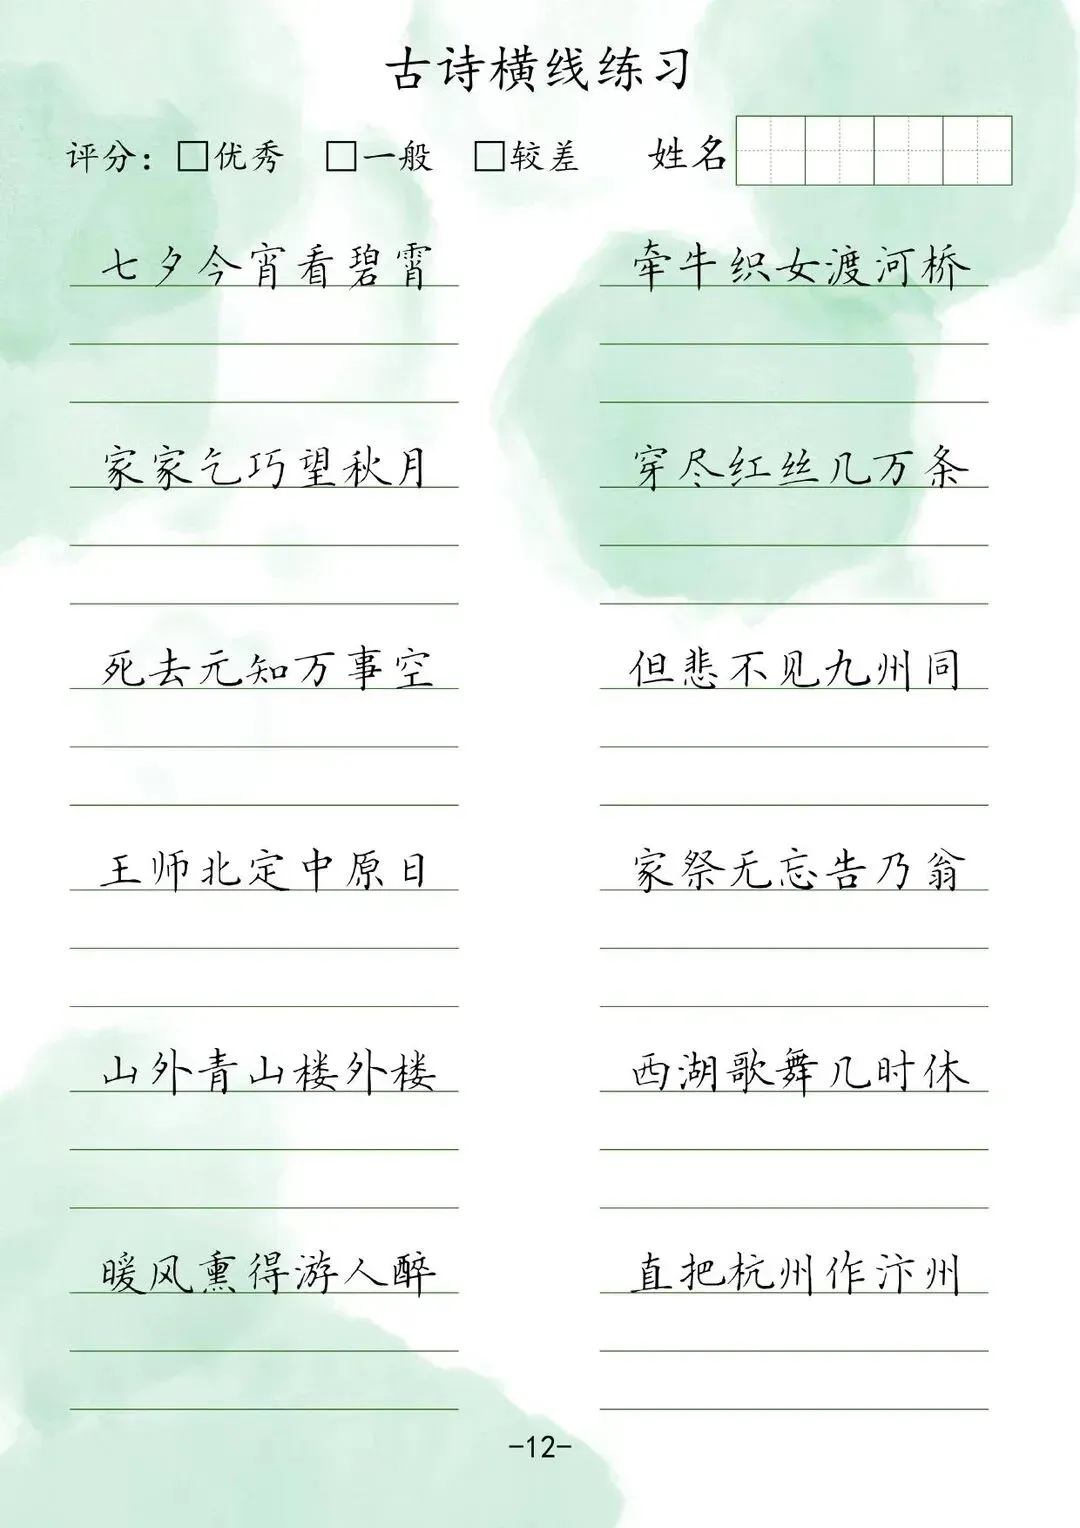 古诗横线练习
评分：□优秀 □一般 □较差 姓名
七夕今宵看碧霄 牵牛织女渡河桥
家家乞巧望秋月 穿尽红丝几万条
死去元知万事空 但悲不见九州同
王师北定中原日 家祭无忘告乃翁
山外青山楼外楼 西湖歌舞几时休
暖风熏得游人醉 直把杭州作汴州
-12-